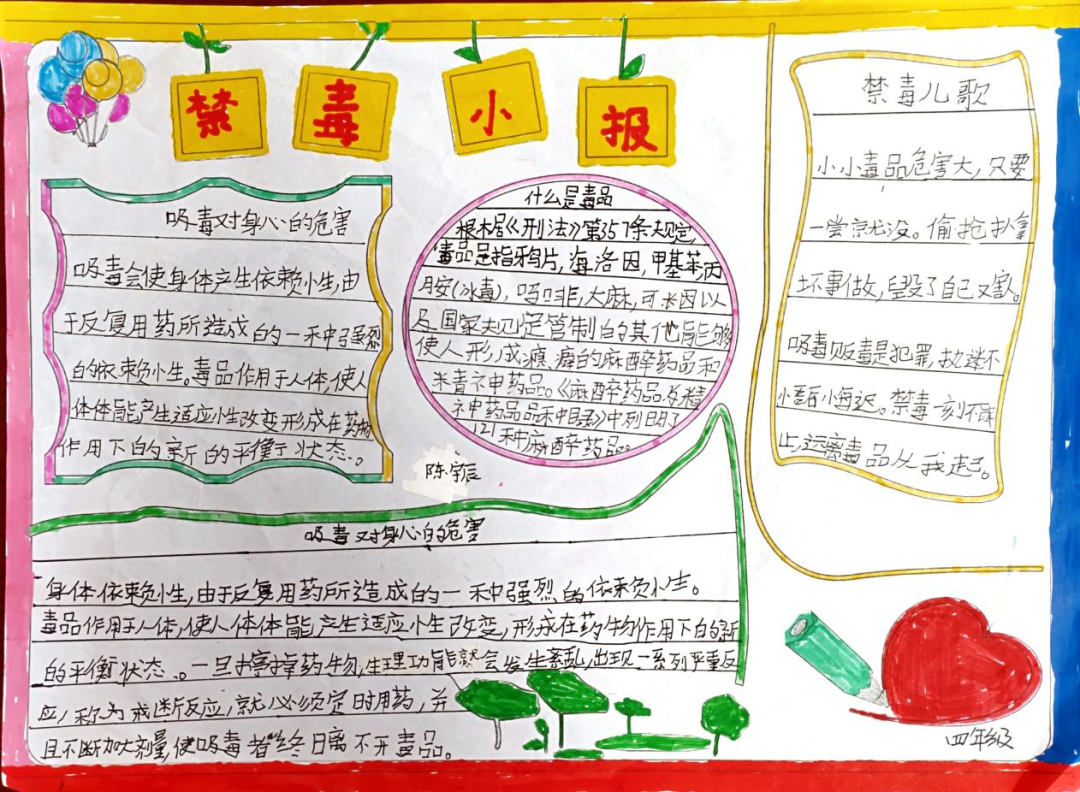 禁毒小报
吸毒对身心的危害
吸毒会使身体产生依赖性,由
于反复用药所造成的一种强烈
的依赖性。毒品作用于人体,使人
体体能产生适应性改变形成在药物
作用下的新的平衡于状态、。
什么是毒品
根据《刑法》第357条规定,
毒品是指鸦片,海洛因,甲基苯丙
胺(冰毒),吗啡,大麻,可卡因以
及国家规定管制的其他能够
使人形成瘾癖的麻醉药品和
精神药品。《麻醉药品及精
神药品品种目录》中列明了
121种麻醉药品。
陈宇辰
禁毒儿歌
小小毒品危害大,只要
一尝就没。偷抢扒拿
坏事做,毁了自己又害。
吸毒贩毒是犯罪,执迷不
悟后悔迟。禁毒一刻不
止远离毒品从我起。
吸毒对身心的危害
身体依赖性,由于反复用药所造成的一种强烈的依赖性。
毒品作用于人体,使人体体能产生适应性改变,形成在药物作用下的新
的平衡状态、。一旦掉药物,生理功能就会发生紊乱,出现一系列严重反
应,称为戒断反应,就必须定时用药,并
且不断加大剂量,使吸毒者终日离不开毒品。
四年级